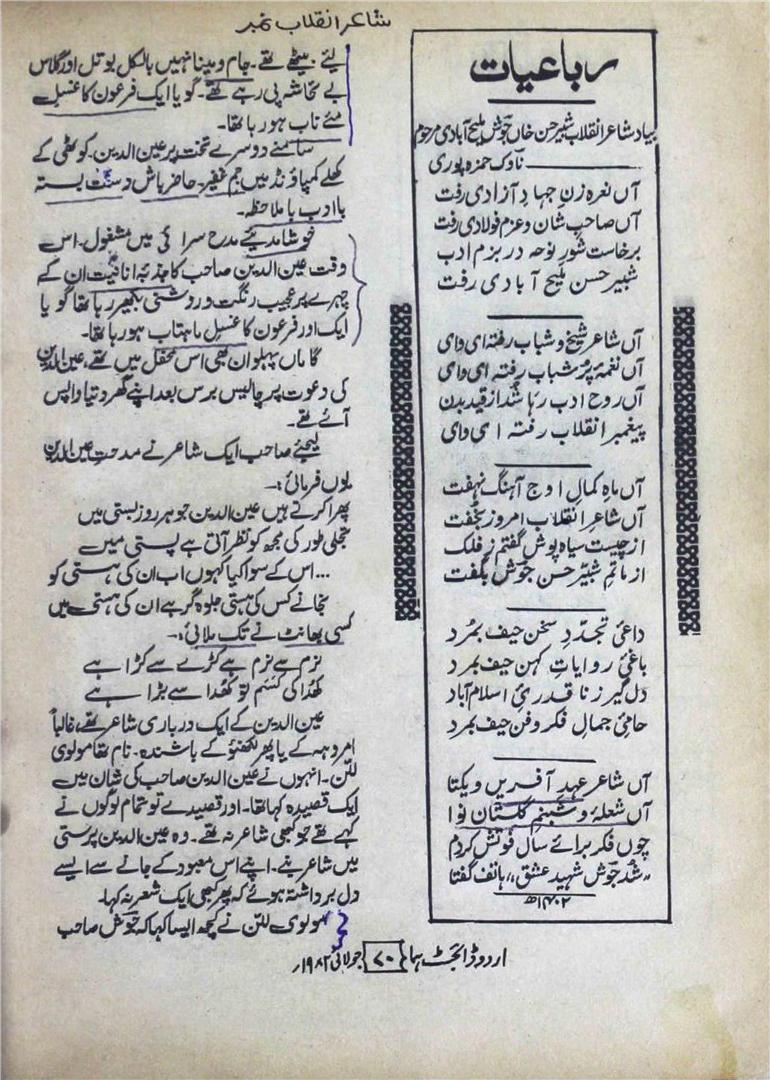 شاعر انقلاب نمبر
رباعیات
بیاد شاعر انقلاب شبیر حسن خاں جوش ملیح آبادی مرحوم
ناوک حمزہ پوری
آں نعرہ زنِ جہادِ آزادی رفت
آں صاحبِ شان و عزم فولادی رفت
برخاست شورِ نوحہ در بزم ادب
شبیر حسن ملیح آبادی رفت
آں شاعر شیخ و شباب رفتہ ای وای
آں نغمۂ پُر شباب رفتہ ای وای
آں روح ادب رہا شُد از قید بدن
پیغمبر انقلاب رفتہ ای وای
آں ماہِ کمالِ اوج آہنگ نہفت
آں شاعرِ انقلاب امروز بخفت
از چیست سیاہ پوش گفتم ز فلک
از ماتمِ شبیر حسن جوش بگفت
داعیٔ تجدّدِ سخن حیف بمُرد
باغیٔ روایاتِ کہن حیف بمرد
دل گیر ز ناقدریٔ اسلام آباد
حامیٔ جمالِ فکر و فن حیف بمرد
آں شاعر عہد آفریں و یکتا
آں شعلۂ و شبنمِ گلستان نوا
چوں فکر برائے سال فوتش کردم
،،شُد جوش شہید عشق،، ہاتف گفتا
۱۴۰۲ھ
لیئے بیٹھے تھے۔ جام و مینا نہیں بالکل بوتل اور گلاس
بے تحاشہ پی رہے تھے۔ گویا ایک فرعون کا غسل
مئے ناب ہو رہا تھا۔
سامنے دوسرے تخت پر عین الدین۔ کوٹھی کے
کھلے کمپاؤنڈ میں جم غفیر۔ حاضر باش دست بستہ
با ادب با ملاحظہ۔
خوشامدیئے مدح سرائی میں مشغول۔ اس
وقت عین الدین صاحب کا جذبۂ انانیت ان کے
چہرے پر عجیب رنگت و روشنی بکھیر رہا تھا گویا
ایک اور فرعون کا غسل ماہتاب ہو رہا تھا۔
گاماں پہلوان بھی اس محفل میں تھے، عین الدین
کی دعوت پر چالیس برس بعد اپنے گھر دتیا واپس
آئے تھے۔
لیجئے صاحب ایک شاعر نے مدحت عین الدین
یوں فرمائی:۔
پھرا کرتے ہیں عین الدین جو ہر روز بستی میں
تجلی طور کی مجھ کو نظر آتی ہے پستی میں
... اس کے سوا کیا کہوں اب ان کی ہستی کو
نجانے کس کی ہستی جلوہ گر ہے ان کی ہستی میں
کسی بھانٹ نے تک ملائی:۔
نرم سے نرم ہے کڑے سے کڑا ہے
خُدا کی قسم تو خُدا سے بڑا ہے
عین الدین کے ایک درباری شاعر تھے، غالباً
امروہہ کے یا پھر لکھنؤ کے باشندہ۔ نام تھا مولوی
للّن۔ انہوں نے عین الدین صاحب کی شان میں
ایک قصیدہ کہا تھا۔ اور قصیدے تو تمام لوگوں نے
کہے تھے جو کبھی شاعر نہ تھے۔ وہ عین الدین پرستی
میں شاعر بنے۔ اپنے اس معبود کے جانے سے ایسے
دل برداشتہ ہوئے کہ پھر کبھی ایک شعر نہ کہا۔
مولوی للّن نے کچھ ایسا کہا کہ جوش صاحب
اردو ڈائجسٹ ہما ۷۰ جولائی ۱۹۸۲ء